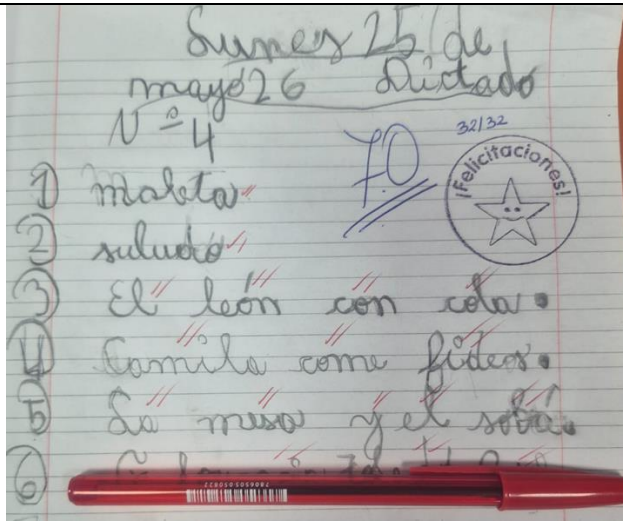 Lunes 25 de
mayo 26 Dictado
Nº 4
7.0
32/32
¡Felicitaciones!
1 maleta
2 saludo
3 El león con cola.
4 Camila come fideos.
5 La mesa y el sofá.
6
7806505050822